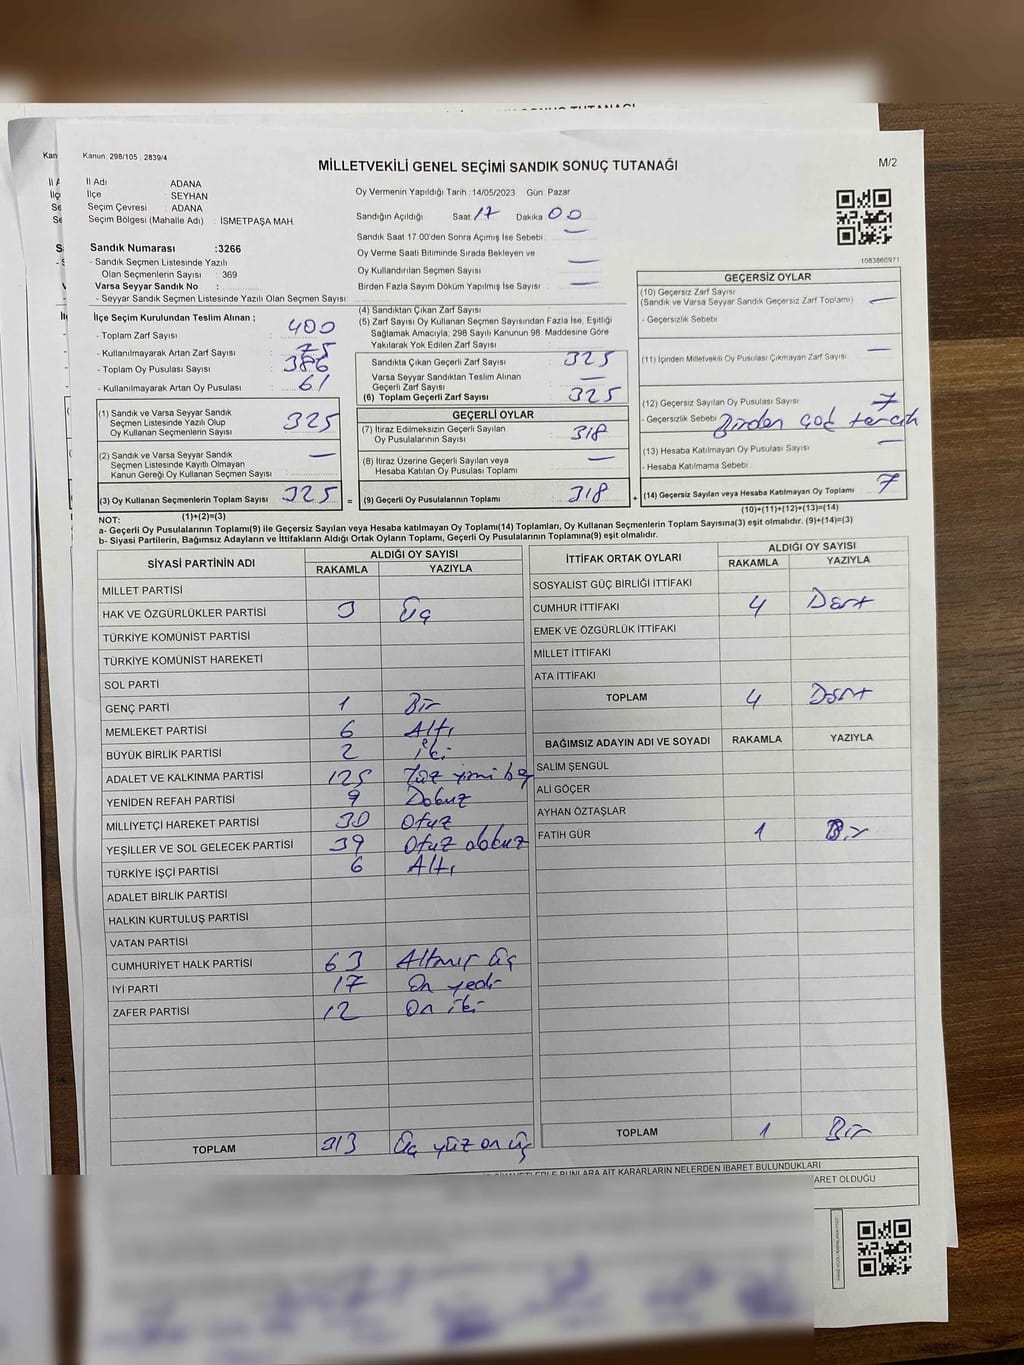 Kanun: 298/105 . 2839/4
MİLLETVEKİLİ GENEL SEÇİMİ SANDIK SONUÇ TUTANAĞI
M/2
İl Adı ADANA
İlçe SEYHAN
Seçim Çevresi ADANA
Seçim Bölgesi (Mahalle Adı) : İSMETPAŞA MAH.
Sandık Numarası :3266
- Sandık Seçmen Listesinde Yazılı
Olan Seçmenlerin Sayısı : 369
Varsa Seyyar Sandık No :
- Seyyar Sandık Seçmen Listesinde Yazılı Olan Seçmen Sayısı:
Oy Vermenin Yapıldığı Tarih :14/05/2023 Gün: Pazar
Sandığın Açıldığı Saat: 17 Dakika: 00
Sandık Saat 17:00'den Sonra Açımış İse Sebebi : —
Oy Verme Saati Bitiminde Sırada Bekleyen ve
Oy Kullandırılan Seçmen Sayısı : —
Birden Fazla Sayım Döküm Yapılmış İse Sayısı : —
1083860971
İlçe Seçim Kurulundan Teslim Alınan ;
- Toplam Zarf Sayısı : 400
- Kullanılmayarak Artan Zarf Sayısı : 75
- Toplam Oy Pusulası Sayısı : 386
- Kullanılmayarak Artan Oy Pusulası : 61
(1) Sandık ve Varsa Seyyar Sandık
Seçmen Listesinde Yazılı Olup
Oy Kullanan Seçmenlerin Sayısı : 325
(2) Sandık ve Varsa Seyyar Sandık
Seçmen Listesinde Kayıtlı Olmayan
Kanun Gereği Oy Kullanan Seçmen Sayısı : —
(3) Oy Kullanan Seçmenlerin Toplam Sayısı : 325 =
(1)+(2)=(3)
(4) Sandıktan Çıkan Zarf Sayısı :
(5) Zarf Sayısı Oy Kullanan Seçmen Sayısından Fazla İse, Eşitliği
Sağlamak Amacıyla, 298 Sayılı Kanunun 98. Maddesine Göre
Yakılarak Yok Edilen Zarf Sayısı :
Sandıkta Çıkan Geçerli Zarf Sayısı : 325
Varsa Seyyar Sandıktan Teslim Alınan
Geçerli Zarf Sayısı : —
(6) Toplam Geçerli Zarf Sayısı : 325
GEÇERLİ OYLAR
(7) İtiraz Edilmeksizin Geçerli Sayılan
Oy Pusulalarının Sayısı : 318
(8) İtiraz Üzerine Geçerli Sayılan veya
Hesaba Katılan Oy Pusulası Toplamı : —
(9) Geçerli Oy Pusulalarının Toplamı : 318 +
GEÇERSİZ OYLAR
(10) Geçersiz Zarf Sayısı
(Sandık ve Varsa Seyyar Sandık Geçersiz Zarf Toplamı) : —
- Geçersizlik Sebebi :
(11) İçinden Milletvekili Oy Pusulası Çıkmayan Zarf Sayısı : —
(12) Geçersiz Sayılan Oy Pusulası Sayısı : 7
- Geçersizlik Sebebi : Birden çok tercih
(13) Hesaba Katılmayan Oy Pusulası Sayısı : —
- Hesaba Katılmama Sebebi :
(14) Geçersiz Sayılan veya Hesaba Katılmayan Oy Toplamı : 7
(10)+(11)+(12)+(13)=(14)
NOT:
a- Geçerli Oy Pusulalarının Toplamı(9) ile Geçersiz Sayılan veya Hesaba katılmayan Oy Toplamı(14) Toplamları, Oy Kullanan Seçmenlerin Toplam Sayısına(3) eşit olmalıdır. (9)+(14)=(3)
b- Siyasi Partilerin, Bağımsız Adayların ve İttifakların Aldığı Ortak Oyların Toplamı, Geçerli Oy Pusulalarının Toplamına(9) eşit olmalıdır.
SİYASİ PARTİNİN ADI ALDIĞI OY SAYISI
RAKAMLA YAZIYLA
MİLLET PARTİSİ
HAK VE ÖZGÜRLÜKLER PARTİSİ 3 Üç
TÜRKİYE KOMÜNİST PARTİSİ
TÜRKİYE KOMÜNİST HAREKETİ
SOL PARTİ
GENÇ PARTİ 1 Bir
MEMLEKET PARTİSİ 6 Altı
BÜYÜK BİRLİK PARTİSİ 2 iki
ADALET VE KALKINMA PARTİSİ 125 Yüz yirmi beş
YENİDEN REFAH PARTİSİ 9 Dokuz
MİLLİYETÇİ HAREKET PARTİSİ 30 Otuz
YEŞİLLER VE SOL GELECEK PARTİSİ 39 Otuz dokuz
TÜRKİYE İŞÇİ PARTİSİ 6 Altı
ADALET BİRLİK PARTİSİ
HALKIN KURTULUŞ PARTİSİ
VATAN PARTİSİ
CUMHURİYET HALK PARTİSİ 63 Altmış üç
İYİ PARTİ 17 On yedi
ZAFER PARTİSİ 12 On iki
TOPLAM 313 Üç yüz on üç
İTTİFAK ORTAK OYLARI ALDIĞI OY SAYISI
RAKAMLA YAZIYLA
SOSYALİST GÜÇ BİRLİĞİ İTTİFAKI
CUMHUR İTTİFAKI 4 Dört
EMEK VE ÖZGÜRLÜK İTTİFAKI
MİLLET İTTİFAKI
ATA İTTİFAKI
TOPLAM 4 Dört
BAĞIMSIZ ADAYIN ADI VE SOYADI RAKAMLA YAZIYLA
SALİM ŞENGÜL
ALİ GÖÇER
AYHAN ÖZTAŞLAR
FATİH GÜR 1 Bir
TOPLAM 1 Bir
BUNLARA AİT KARARLARIN NELERDEN İBARET BULUNDUKLARI
ARET OLDUĞU